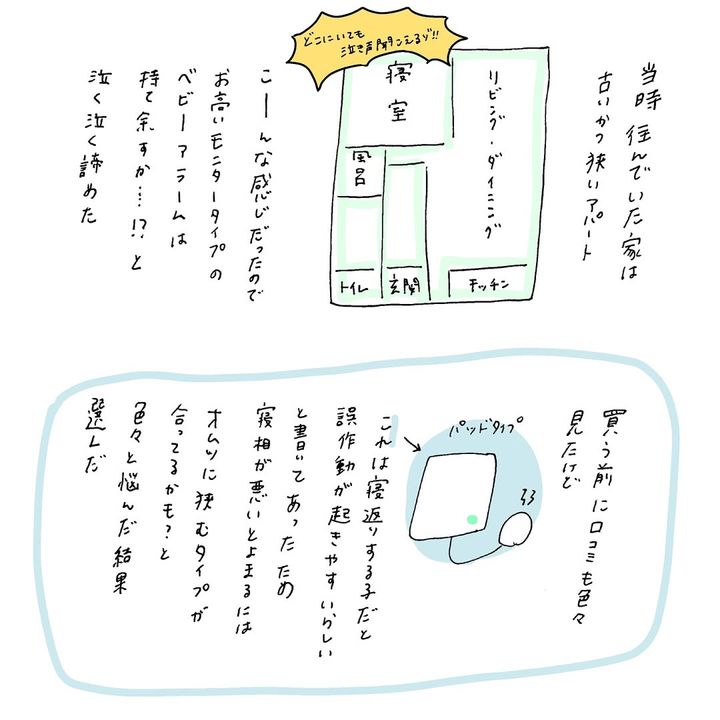 当時住んでいた家は
古いかつ狭いアパート
どこにいても
泣き声聞こえるゾ!!
寝室
リビング・ダイニング
風呂
トイレ
玄関
キッチン
こーんな感じだったので
お高いモニタータイプの
ベビーアラームは
持て余すか…!?と
泣く泣く諦めた
買う前に口コミも色々
見たけど
パッドタイプ
これは寝返りする子だと
誤作動が起きやすいらしい
と書いてあったため
寝相が悪いとよまるには
オムツに挟むタイプが
合ってるかも?と
色々と悩んだ結果
選んだ